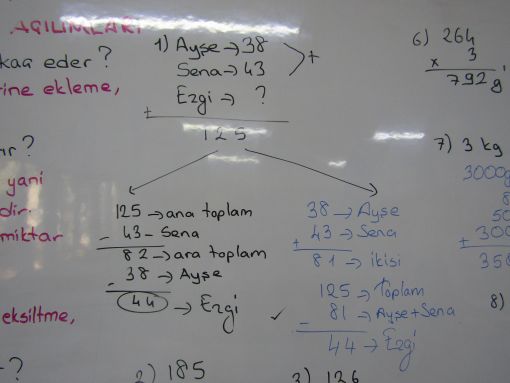 AÇILIMLARI
kaa eder ?
rine ekleme,
ır ?
yani
dir.
miktar
eksiltme,
?
1) Ayşe → 38
Sena → 43
+
Ezgi → ?
+
125
125 → ana toplam
- 43 - Sena
82 → ara toplam
- 38 → Ayşe
44 → Ezgi ✓
38 → Ayşe
+ 43 → Sena
81 → ikisi
125 → Toplam
- 81 → Ayşe+Sena
44 → Ezgi
2) 185
3) 126
6) 264
x 3
792 g
7) 3 kg
3000g
8
50
+ 300
358
8)